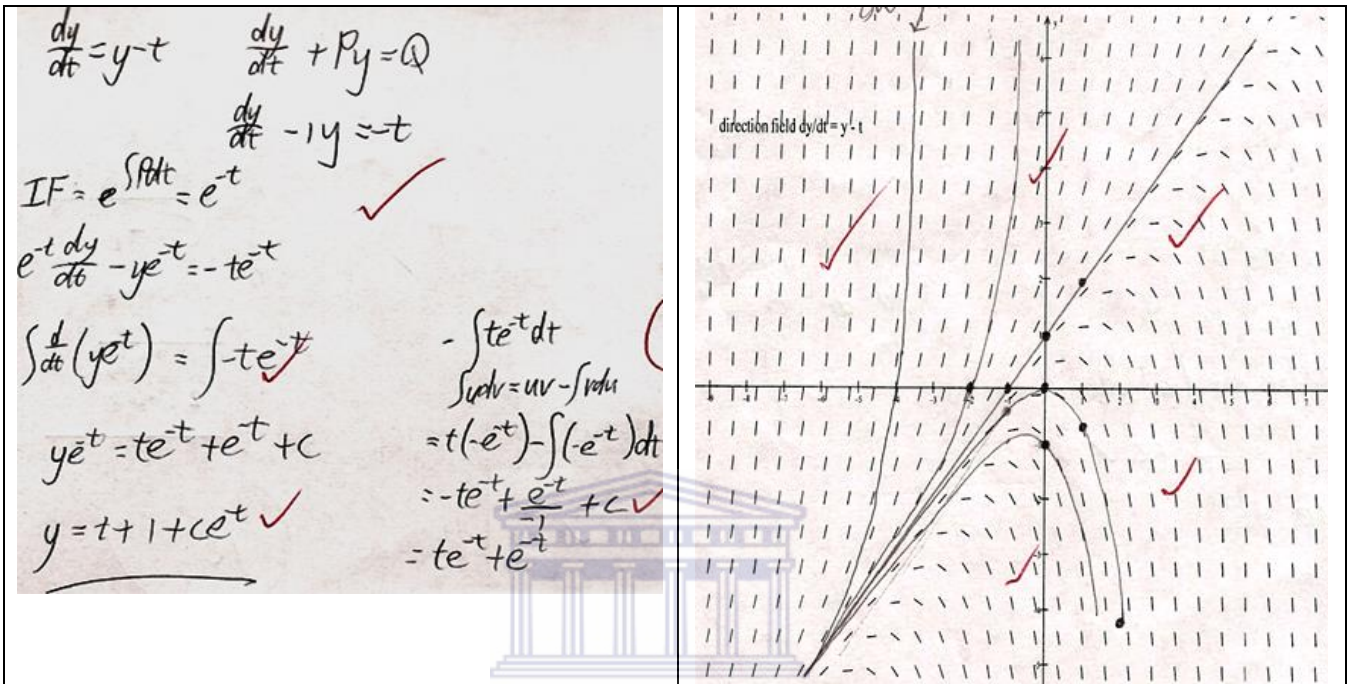 dy/dt = y-t    dy/dt + Py = Q
dy/dt - 1y = -t
IF = e^∫Pdt = e^-t
e^-t dy/dt - ye^-t = -te^-t
∫ d/dt (ye^-t) = ∫ -te^-t
ye^-t = te^-t + e^-t + c
y = t + 1 + ce^t
- ∫ te^-t dt
∫udv = uv - ∫vdu
= t(-e^-t) - ∫(-e^-t)dt
= -te^-t + e^-t/-1 + c
= te^-t + e^-t
direction field dy/dt = y - t